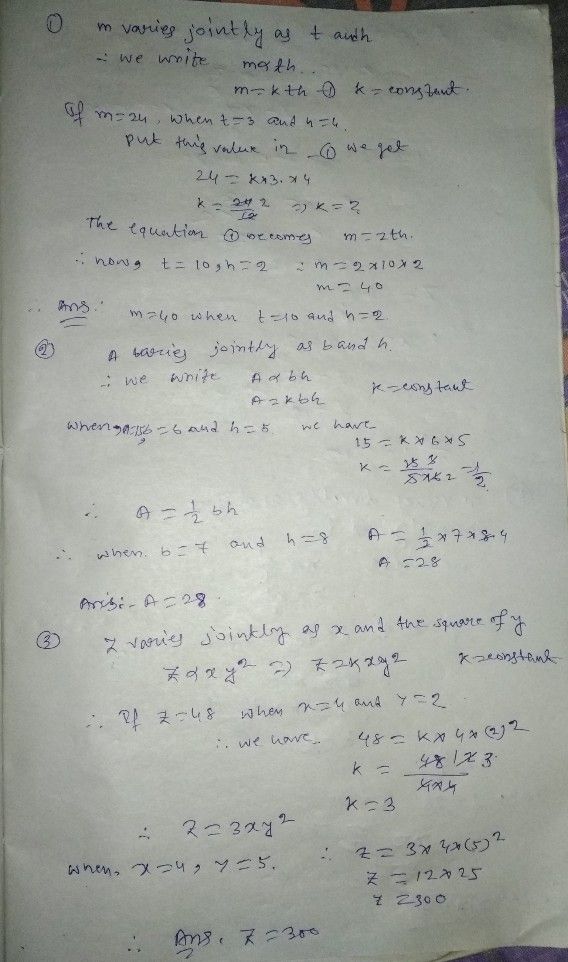 ① m varies jointly as t and h
∴ we write m∝th..
m=kth-① k=constant.
If m=24, when t=3 and h=4.
put this value in -① we get
24=k×3.×4
k=24/12 2 ⇒ k=2
The equation ① becomes m=2th.
∴ now, t=10, h=2 ∴ m=2×10×2
m=40
∴ Ans: m=40 when t=10 and h=2.
② A varies jointly as b and h.
∴ we write A∝bh k=constant
A=kbh
when, A=15, b=6 and h=5 we have
15=k×6×5
k=15 3/5×6 2=1/2
∴ A=1/2 bh
∴ when. b=7 and h=8 A=1/2×7×8 4
A=28
Ans:- A=28
③ Z varies jointly as x and the square of y
Z∝xy² ⇒ Z=kxy² k=constant
∴ If Z=48 when x=4 and y=2
∴ we have 48=k×4×(2)²
k=48 12 3/4×4
k=3
∴ Z=3xy²
when, x=4, y=5. ∴ Z=3×4×(5)²
Z=12×25
Z=300
∴ Ans. Z=300